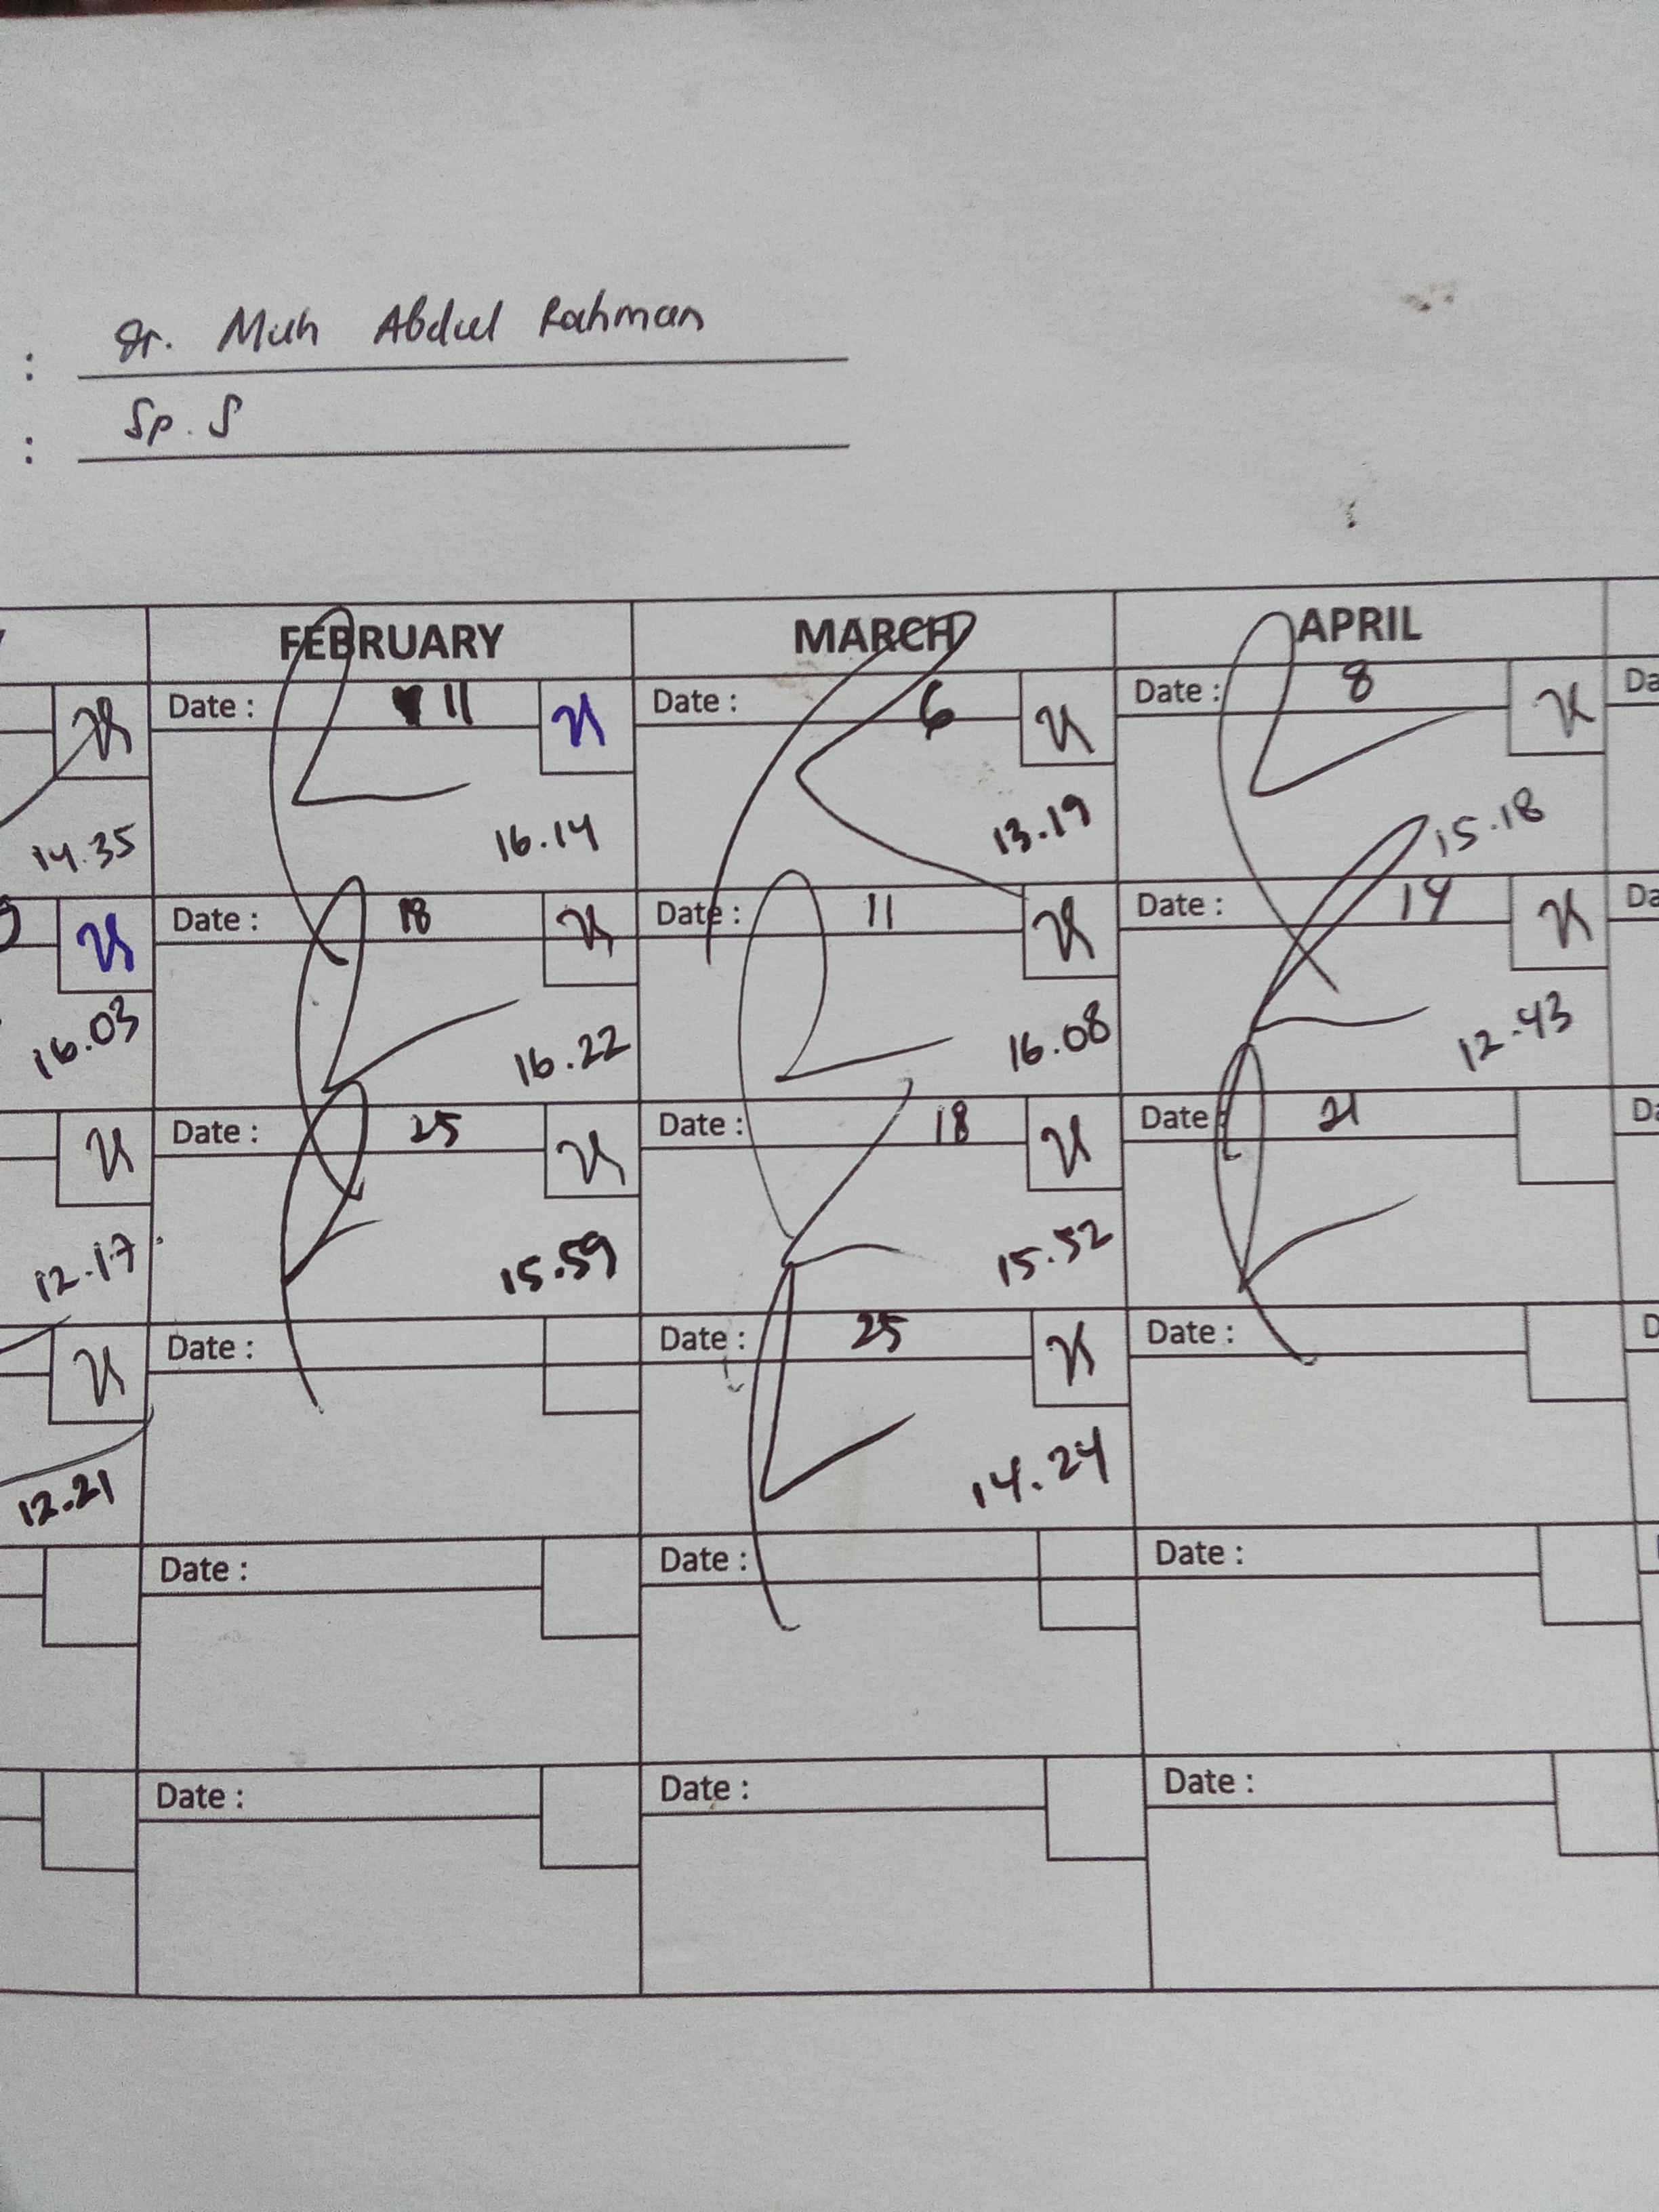 : dr. Muh Abdul Rahman
: Sp. S
FEBRUARY MARCH APRIL
Date : 11 Date : 6 Date : 8
14.35 16.14 13.19 15.18
Date : 18 Date : 11 Date : 14
16.03 16.22 16.08 12.43
Date : 25 Date : 18 Date : 21
12.17 15.59 15.52
Date : Date : 25 Date :
12.21 14.24
Date : Date : Date :
Date : Date : Date :